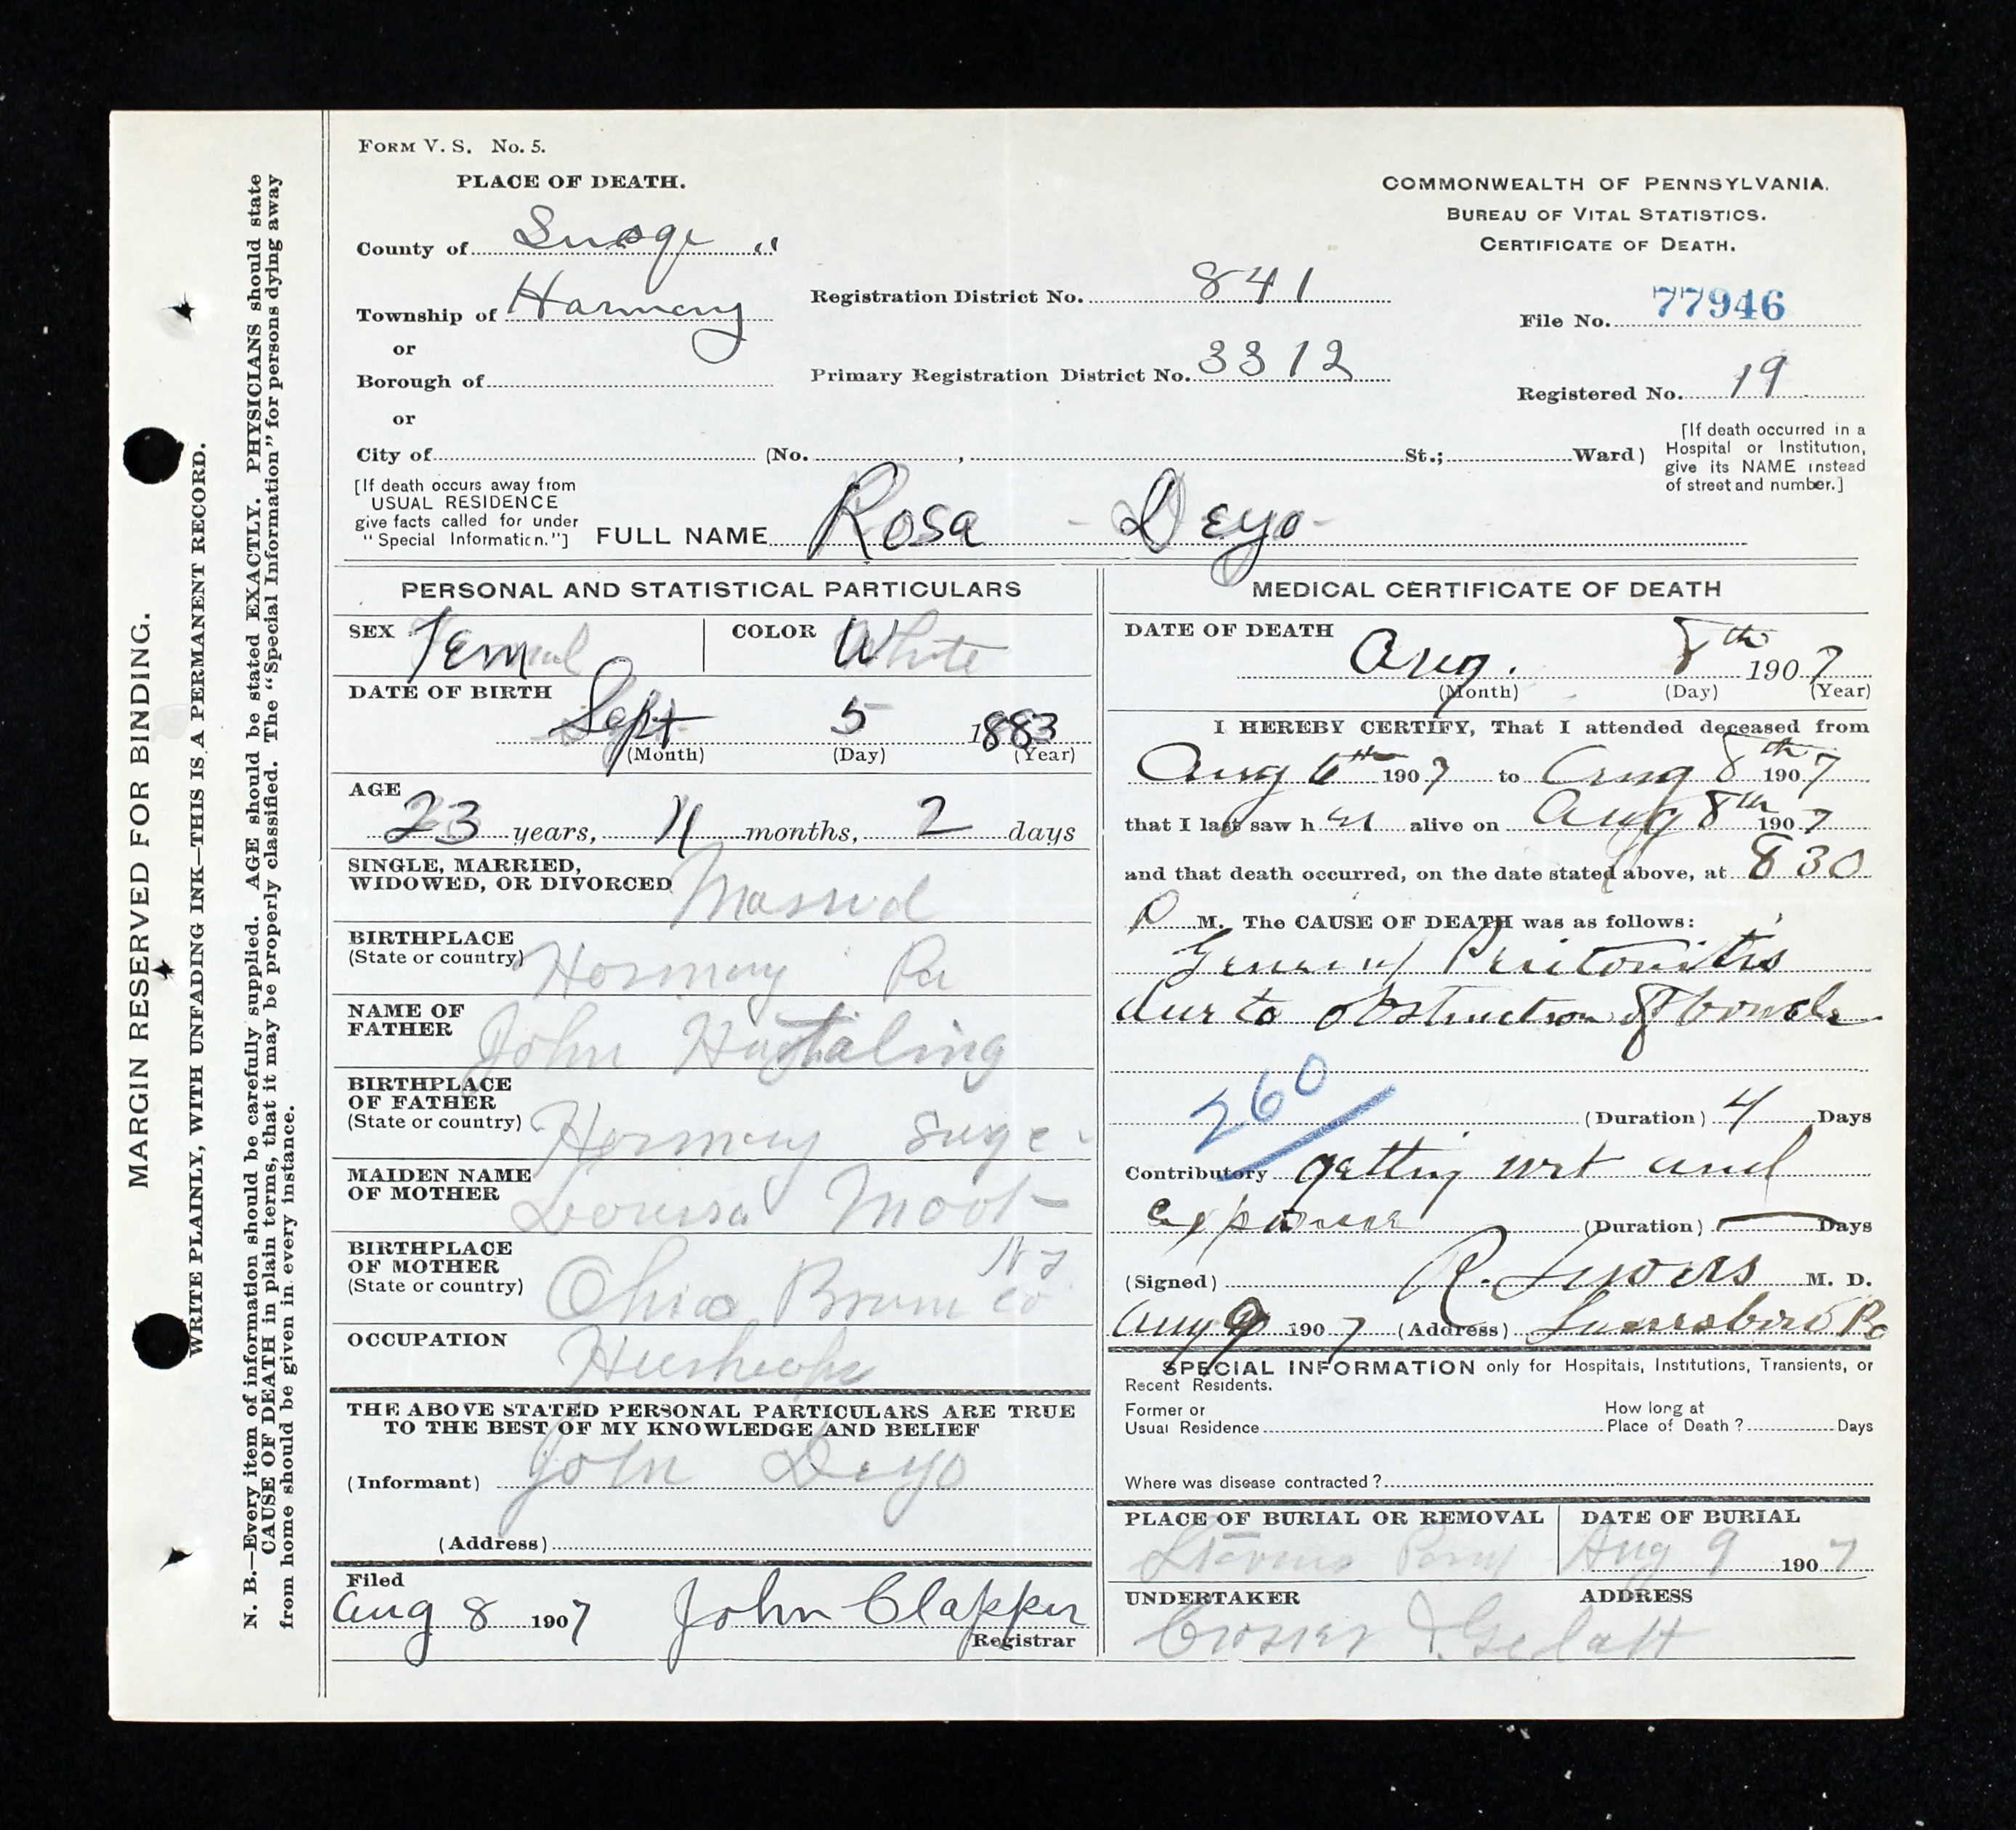 FORM V. S. No. 5.
PLACE OF DEATH.
COMMONWEALTH OF PENNSYLVANIA.
BUREAU OF VITAL STATISTICS.
CERTIFICATE OF DEATH.
County of Susqe
Township of Harmony
or
Borough of
or
City of (No. , St.; Ward)
Registration District No. 841
Primary Registration District No. 3312
File No. 77946
Registered No. 19
[If death occurred in a
Hospital or Institution,
give its NAME instead
of street and number.]
[If death occurs away from
USUAL RESIDENCE
give facts called for under
"Special Information."]
FULL NAME Rosa Deyo
PERSONAL AND STATISTICAL PARTICULARS
SEX Femal
COLOR White
DATE OF BIRTH
Sept 5 1883
(Month) (Day) (Year)
AGE
23 years, 11 months, 2 days
SINGLE, MARRIED,
WIDOWED, OR DIVORCED Married
BIRTHPLACE
(State or country) Harmony Pa
NAME OF
FATHER John
BIRTHPLACE
OF FATHER
(State or country) Harmony
MAIDEN NAME
OF MOTHER Louisa
BIRTHPLACE
OF MOTHER
(State or country)
OCCUPATION
THE ABOVE STATED PERSONAL PARTICULARS ARE TRUE
TO THE BEST OF MY KNOWLEDGE AND BELIEF
(Informant) John Deyo
(Address)
Filed
Aug 8 1907 John Clapper
Registrar
MEDICAL CERTIFICATE OF DEATH
DATE OF DEATH
Aug. 8th 1907
(Month) (Day) (Year)
I HEREBY CERTIFY, That I attended deceased from
Aug 6th 1907 to Aug 8th 1907
that I last saw her alive on Aug 8th 1907
and that death occurred, on the date stated above, at 8 30
P M. The CAUSE OF DEATH was as follows:
General Peritonitis
due to obstruction of bowels
260
(Duration) 4 Days
Contributory getting wet and
exposure (Duration) Days
(Signed) R. M. D.
Aug 9 1907 (Address) Pa
SPECIAL INFORMATION only for Hospitals, Institutions, Transients, or
Recent Residents.
Former or
Usual Residence
How long at
Place of Death? Days
Where was disease contracted?
PLACE OF BURIAL OR REMOVAL
Stevens
DATE OF BURIAL
Aug 9 1907
UNDERTAKER
ADDRESS
MARGIN RESERVED FOR BINDING.
WRITE PLAINLY, WITH UNFADING INK—THIS IS A PERMANENT RECORD.
N. B.—Every item of information should be carefully supplied. AGE should be stated EXACTLY. PHYSICIANS should state
CAUSE OF DEATH in plain terms, that it may be properly classified. The "Special Information" for persons dying away
from home should be given in every instance.